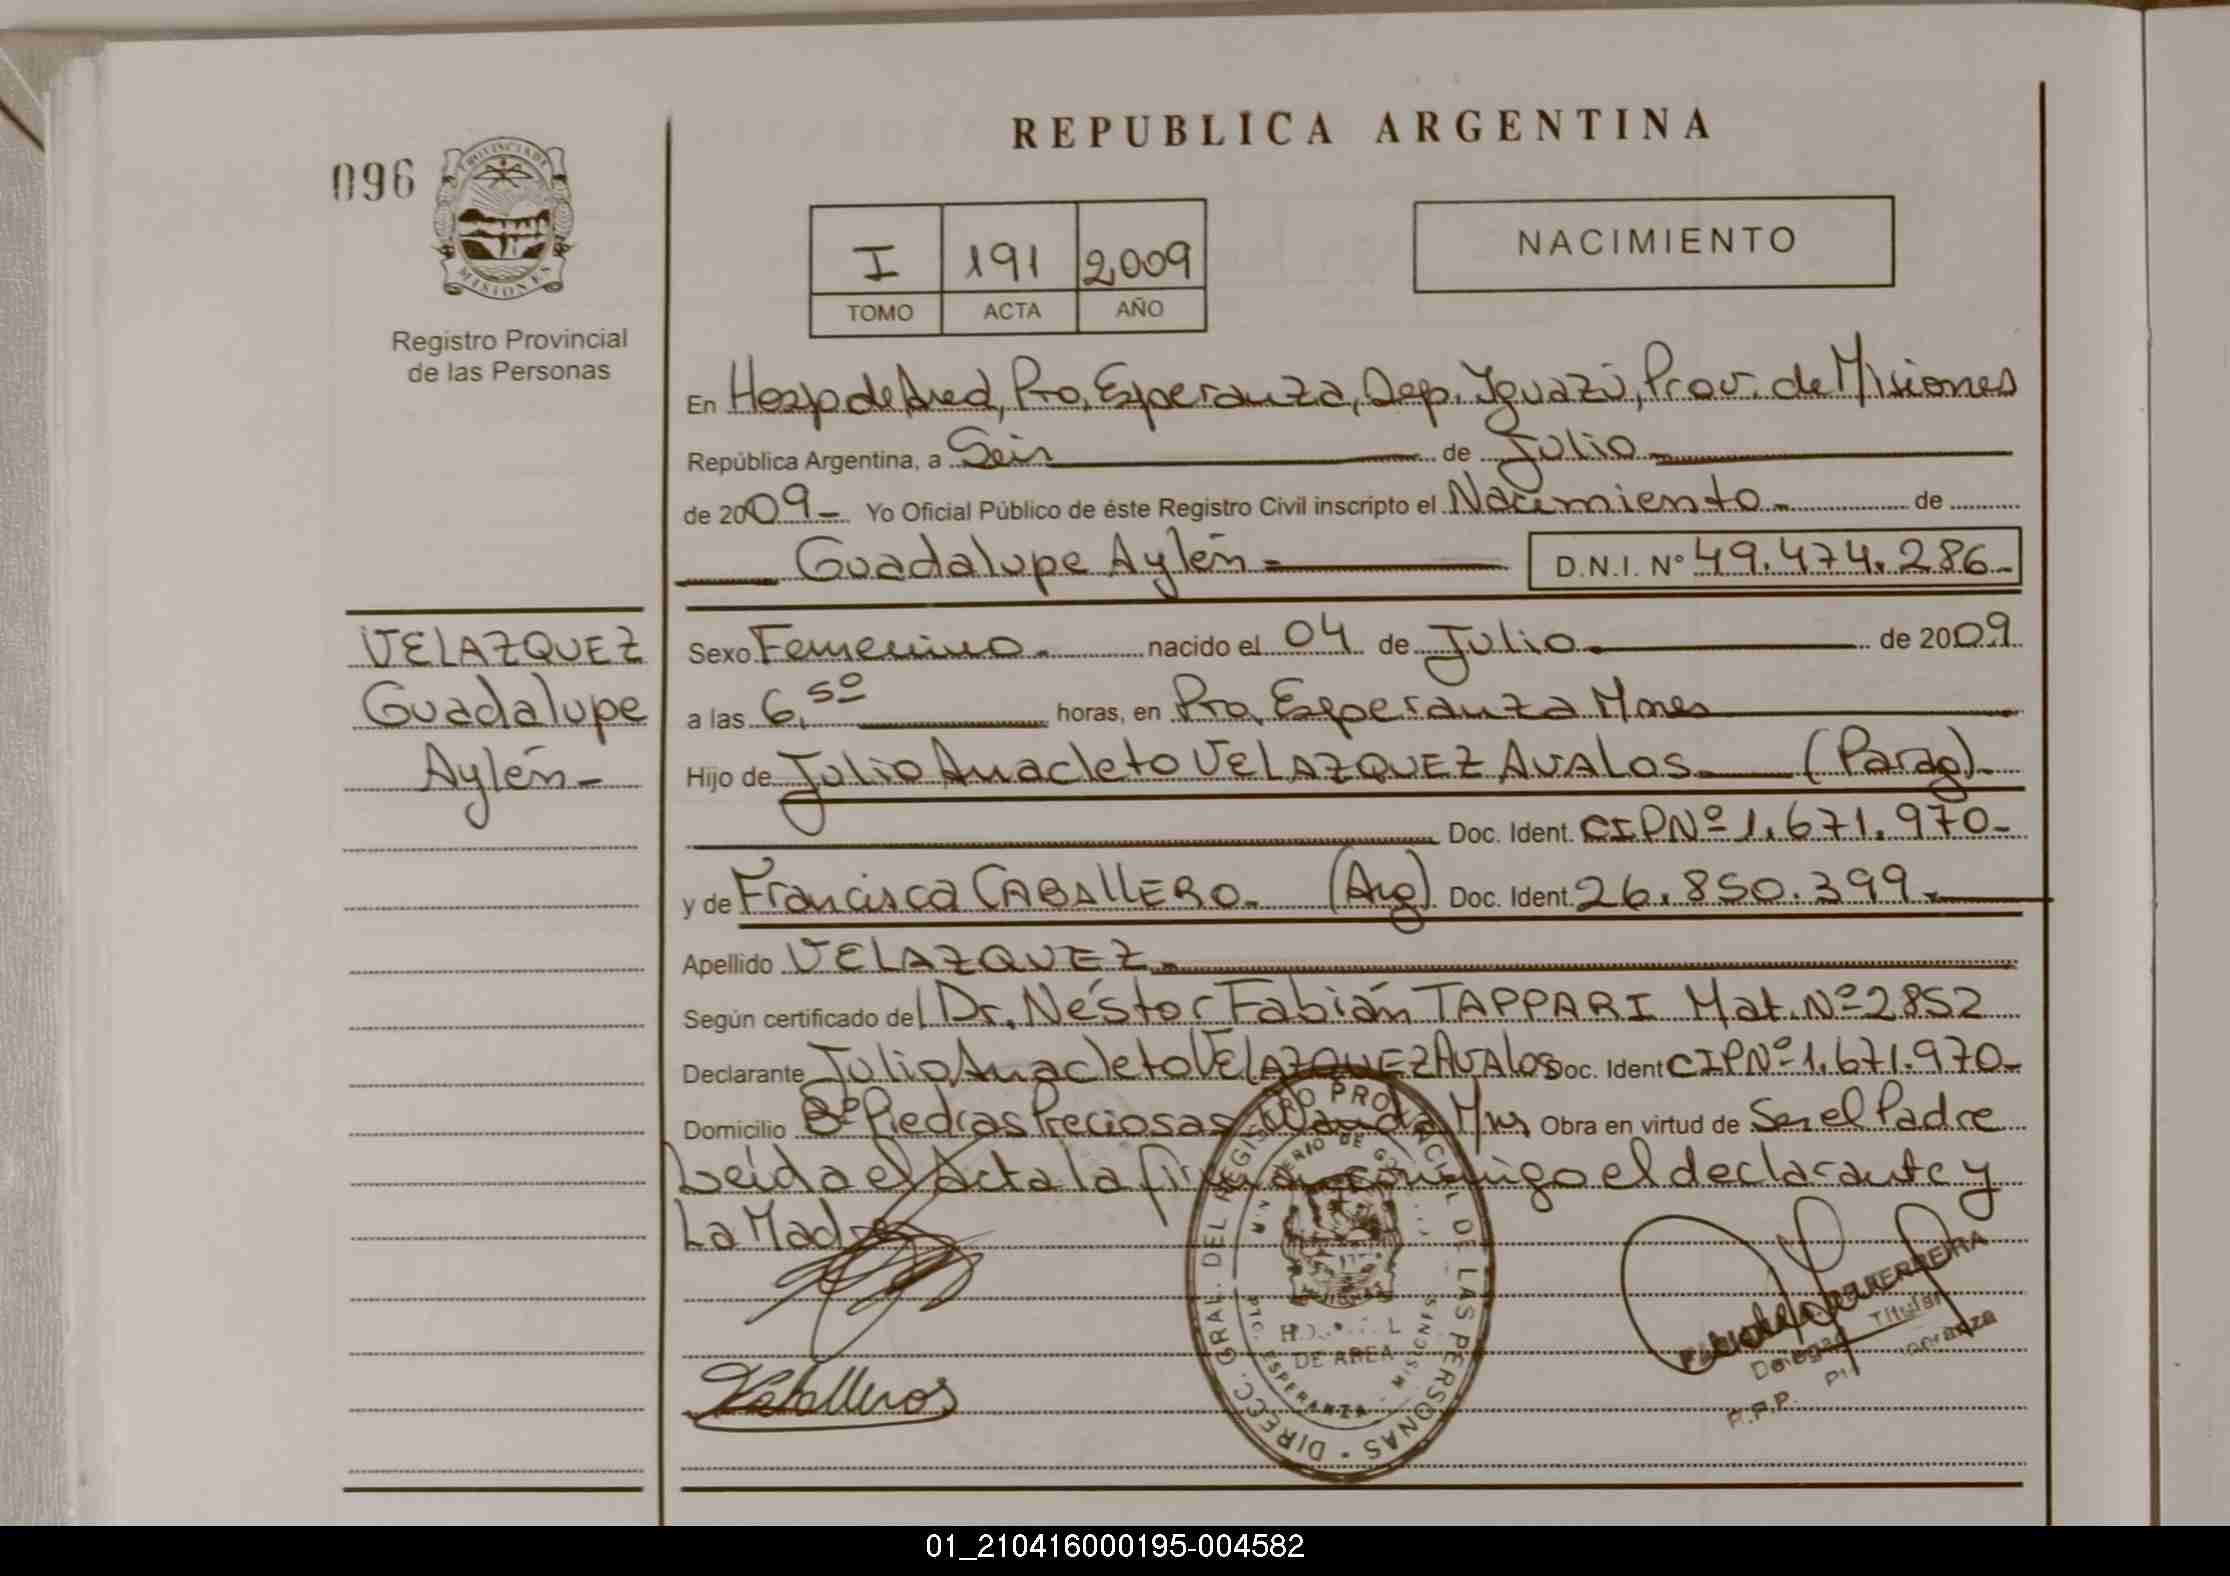 096
PROVINCIA DE
MISIONES
Registro Provincial
de las Personas
REPUBLICA ARGENTINA
I 191 2009
TOMO ACTA AÑO
NACIMIENTO
En Hosp de Area, Pto, Esperanza, Dep. Iguazú, Prov. de Misiones
República Argentina, a Seis de Julio
de 2009- Yo Oficial Público de éste Registro Civil inscripto el Nacimiento de
Guadalupe Aylén D.N.I. Nº 49.474.286-
VELAZQUEZ
Guadalupe
Aylén-
Sexo Femenino nacido el 04 de Julio de 2009
a las 6,50 horas, en Pto, Esperanza Mnes
Hijo de Julio Anacleto VELAZQUEZ AVALOS (Parag)
Doc. Ident. CIPNº 1.671.970-
y de Francisca CABALLERO (Arg) Doc. Ident. 26.850.399-
Apellido VELAZQUEZ
Según certificado del Dr. Néstor Fabián TAPPARI Mat. Nº 2852
Declarante Julio Anacleto VELAZQUEZ AVALOS Doc. Ident CIPNº 1.671.970-
Domicilio Bº Piedras Preciosas Wanda Mns Obra en virtud de Ser el Padre
Leida el Acta la firman conmigo el declarante y
La Madre
DIRECC. GRAL. DEL REGISTRO PROVINCIAL DE LAS PERSONAS
MINISTERIO DE
DE AREA
PTO. ESPERANZA - MISIONES
FERREIRA
Titular
01_210416000195-004582